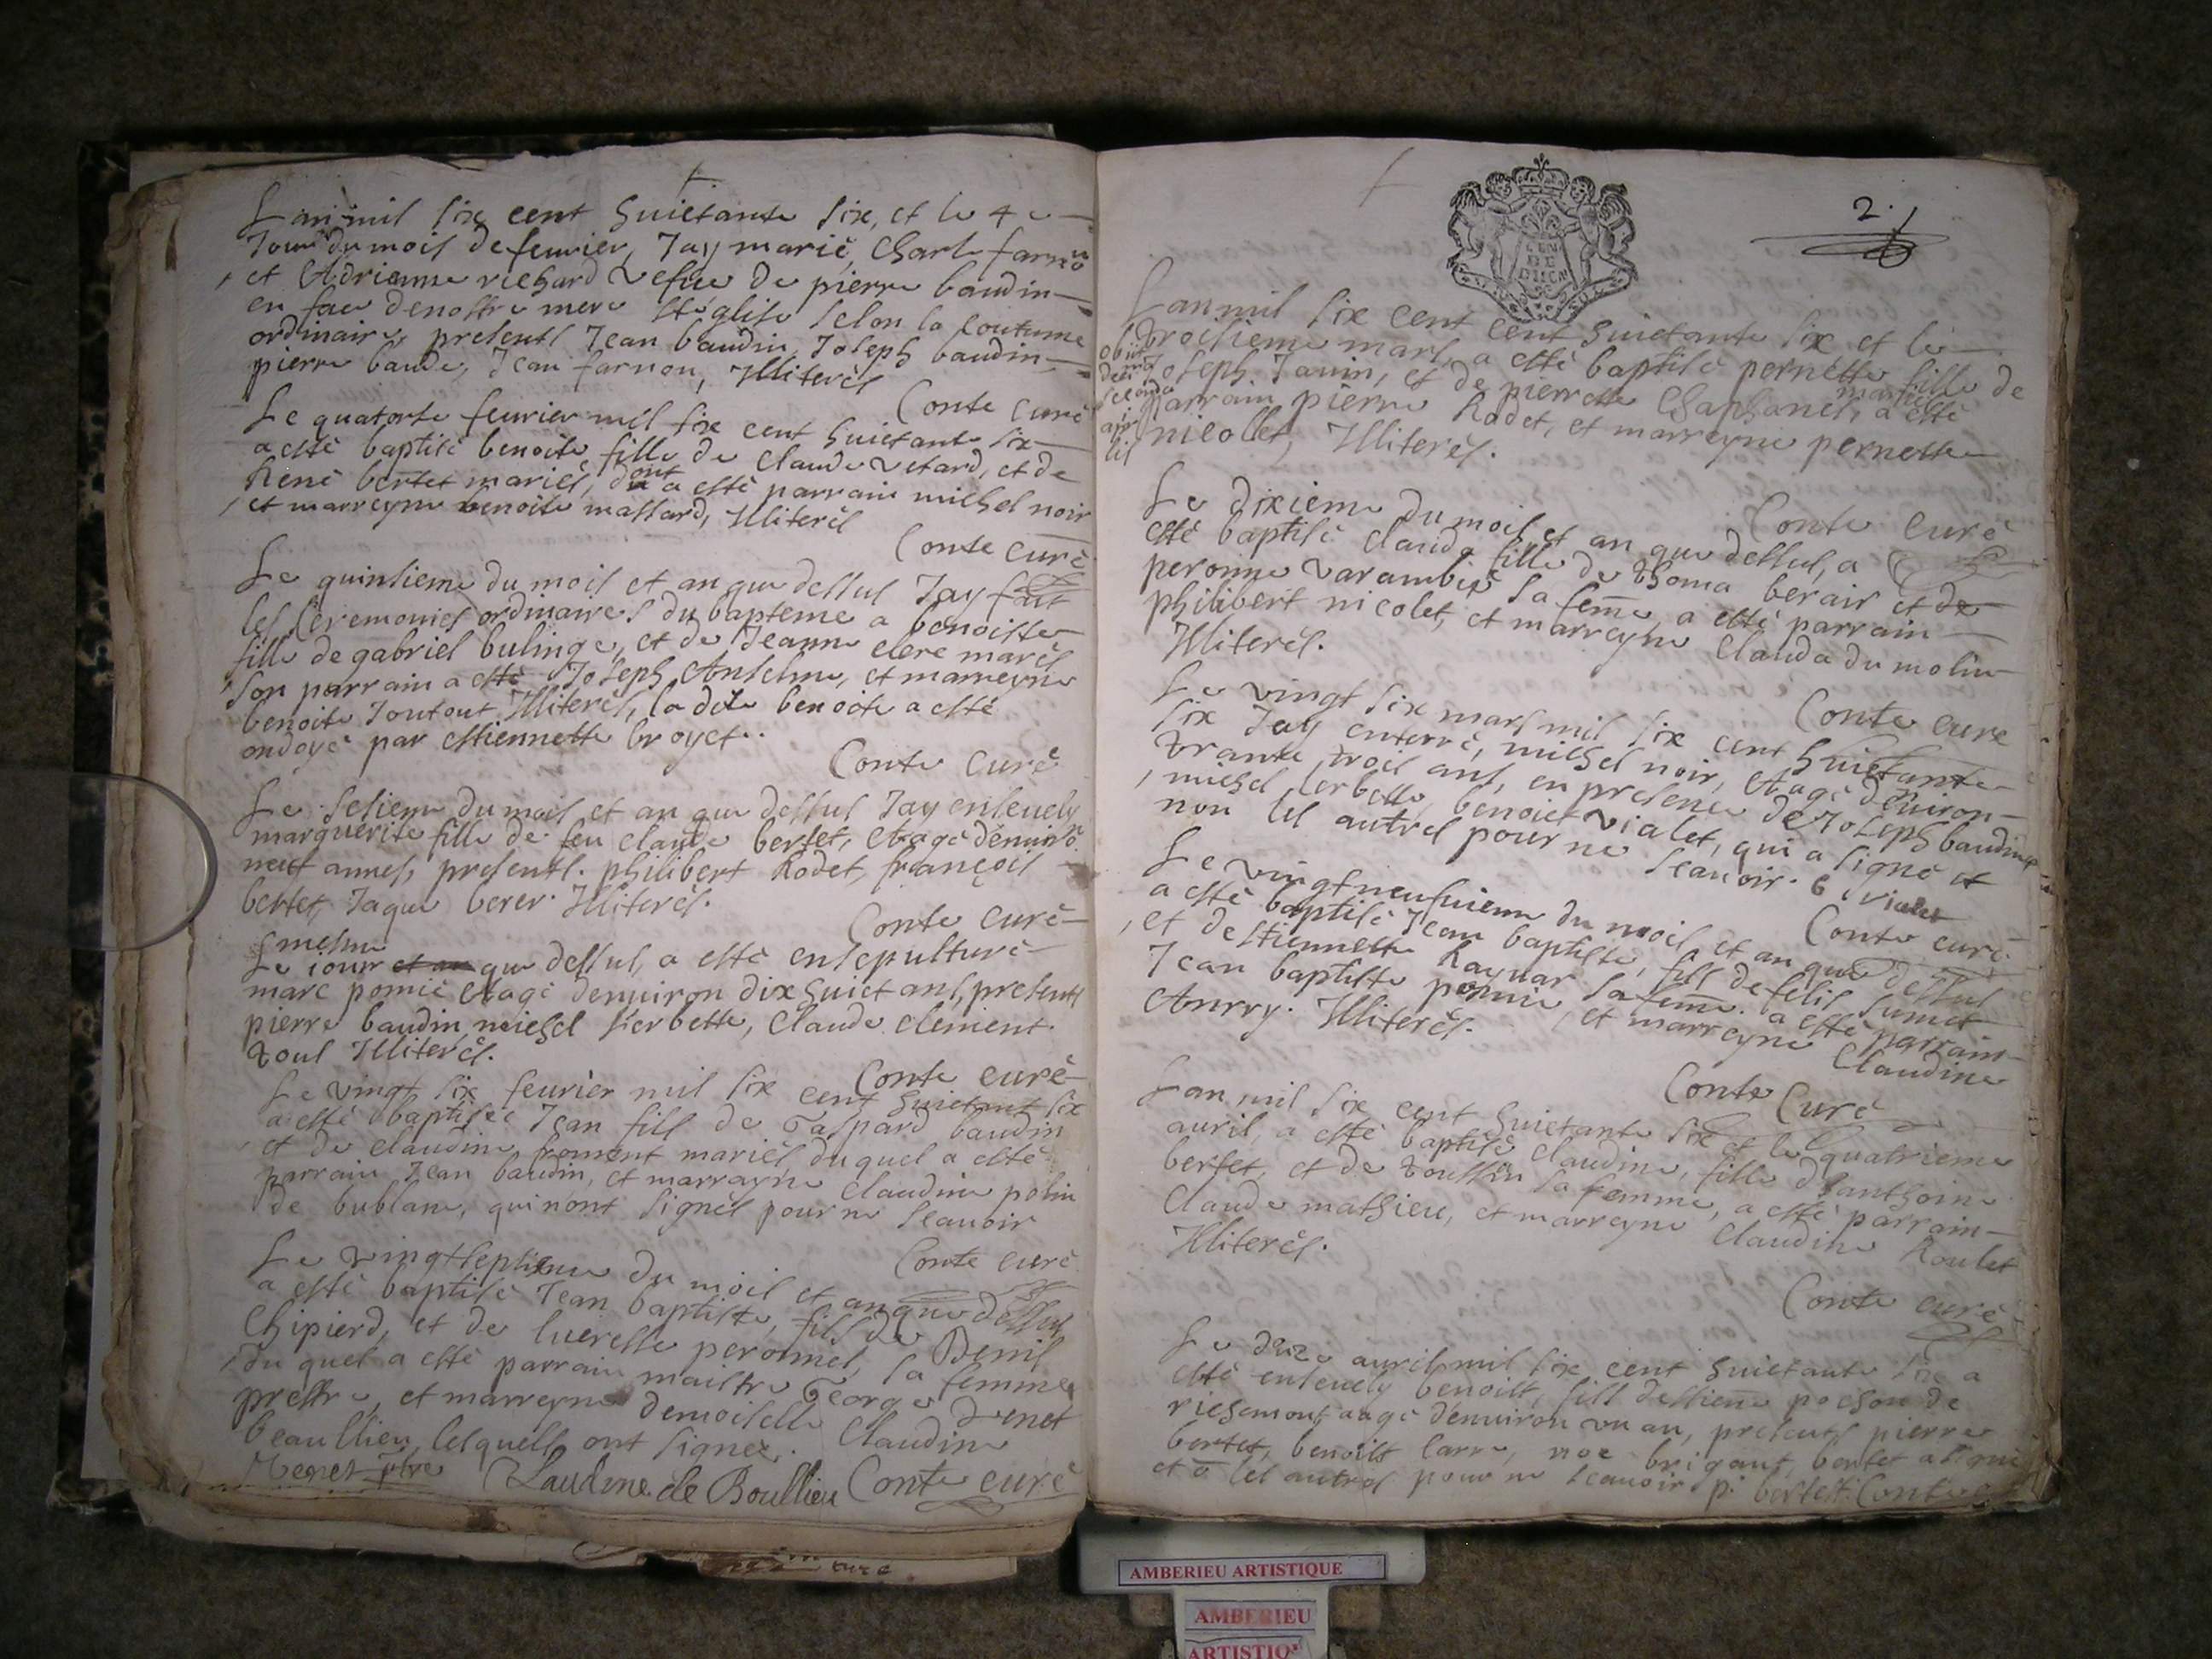 Lan mil six cent huictante six, et le 4 e
Jour du mois de feurier, Jay marié, Charle farnō
et Adrianne richard vefue de pierre baudin
en face de nostre mere ste église selon la coutume
ordinaire, presents Jean baudin, Joseph baudin
pierre baude, Jean farnon, Illiterés
Conte curé
Le quatorse feurier mil six cent huictante six
a esté baptisé benoite fille de Claude vetard, et de
René bertet mariés, dont a esté parrain michel noir
et marreyne benoite massard, Illiterés
Conte curé
Le quinsieme du mois et an que dessus Jay fait
les Ceremonies ordinaires du bapteme a benoiste
fille de gabriel bulinge, et de Jeanne clere mariés
son parrain a esté Joseph Anselme, et marreyne
benoite Joutout, Illiterés, la dite benoite a esté
ondoyé par estiennette broyet..
Conte Curé
Le sesieme du mois et an que dessus Jay enseuely
marguerite fille de feu claude bertet, et agé denuirō
neuf annes, presents. philibert Rodet, françois
bertet, Jaque berer. Illiterés.
Conte curé
mesme
Le iour et an que dessus, a esté ensepulturé
marc pomié et agé denuiron dix huict ans, presents
pierre baudin, michel serbette, Claude clement.
tous Illiterés.
Conte curé
Le vingt six feurier mil six cent huictant six
a esté baptisée Jean fils de Gaspard baudin
et de claudine froment mariés, du quel a esté
parrain Jean baudin, et marrayne Claudine polin
de bublane, qui nont signés pour ne scauoir
Conte curé
Le vingtseptieme du mois et an que dessus
a esté baptisé Jean baptiste, fils de Denis
Chipierd, et de lucresse peronnet, sa femme
du quel a esté parrain maistre George venet
prestre, et marreyne demoiselle Claudine
beaullieu, lesquells ont signez.
Venet ptre Claudine de Boullieu Conte curé
2.
Lan mil six cent cent huictante six et le
troisieme mars, a esté baptisé pernette fille de
Joseph Janin, et de pierrette Chaphanel, mariés a esté
parrain pierre Rodet, et marreyne pernette
nicollet, Illiterés.
obiit
die
secunda
Conte curé
Le dixieme du mois et an que dessus, a
esté baptisé Clauda fille de thoma berair et de
peronne varambie sa feme, a esté parrain
philibert nicolet, et marreyne Clauda du molin
Illiterés.
Conte cure
Le vingt six mars mil six cent huictante
six Jay enterré, michel noir, et agé denuiron
trante trois ans, en presence de Joseph baudin
michel serbette, benoict vialet, qui a signé et
non les autres pour ne scauoir. b vialet
Conte curé
Le vingtneufuieme du mois et an que dessus
a esté baptisé Jean baptiste, fils de felis sumet
et destiennette Raynar sa feme. a esté parrain
Jean baptiste pomie, et marreyne Claudine
Anrry. Illiterés.
Conte Curé
Lan mil six cent huictante six et le quatrieme
auril, a esté baptisé Claudine, fille danthoine
bertet, et de toussin sa femme, a esté parrain
Claude mathieu, et marreyne Claudine Roulet
Illiterés.
Conte curé
Le auril mil six cent huictante six a
esté enseuely benoist, fils destiene pochon de
richemont aagé denuiron un an, presents pierre
bertet, benoist larre, noe brigant, bertet a signé
et ō les autres pour ne scauoir p. bertet. Conte
AMBERIEU ARTISTIQUE
AMBERIEU
ARTISTIQ